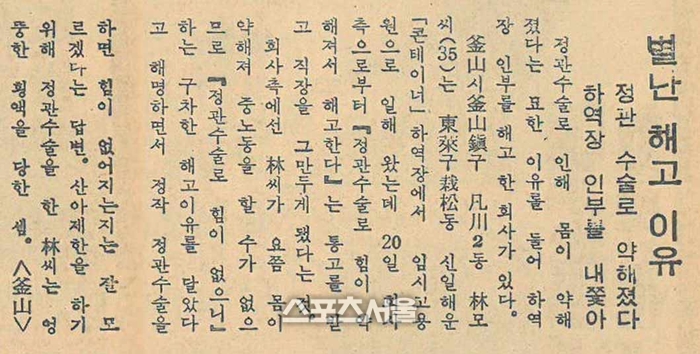 별난 해고 이유
정관 수술로 약해졌다
하역장 인부를 내쫓아
정관수술로 인해 몸이 약해
졌다는 묘한 이유를 들어 하역
장 인부를 해고 한 회사가 있다.
釜山시釜山鎭구 凡川2동 林모
씨(35)는 東萊구栽松동 신일해운
「콘테이너」하역장에서 임시고용
원으로 일해 왔는데 20일 회사
측으로부터『정관수술로 힘이 약
해져서 해고한다』는 통고를 받
고 직장을 그만두게 됐다는 것.
회사측에선 林씨가 요즘 몸이
약해져 중노동을 할 수가 없으
므로『정관수술로 힘이 없으니』
하는 구차한 해고이유를 달았다
고 해명하면서 정작 정관수술을
하면 힘이 없어지는지는 잘 모
르겠다는 답변. 산아제한을 하기
위해 정관수술을 한 林씨는 엉
뚱한 횡액을 당한 셈. <釜山>
스포츠서울